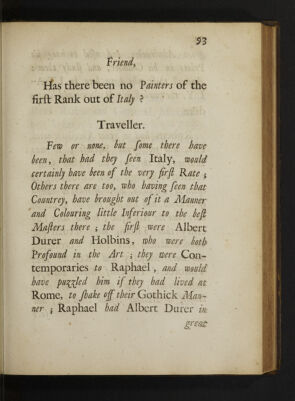 93
Friend,
Has there been no Painters of the
firſt Rank out of Italy ?
Traveller.
Few or none, but ſome there have
been, that had they ſeen Italy, would
certainly have been of the very firſt Rate ;
Others there are too, who having ſeen that
Countrey, have brought out of it a Manner
and Colouring little Inferiour to the beſt
Maſters there ; the firſt were Albert
Durer and Holbins, who were both
Profound in the Art ; they were Con-
temporaries to Raphael, and would
have puzzled him if they had lived at
Rome, to ſhake off their Gothick Man-
ner ; Raphael had Albert Durer in
great